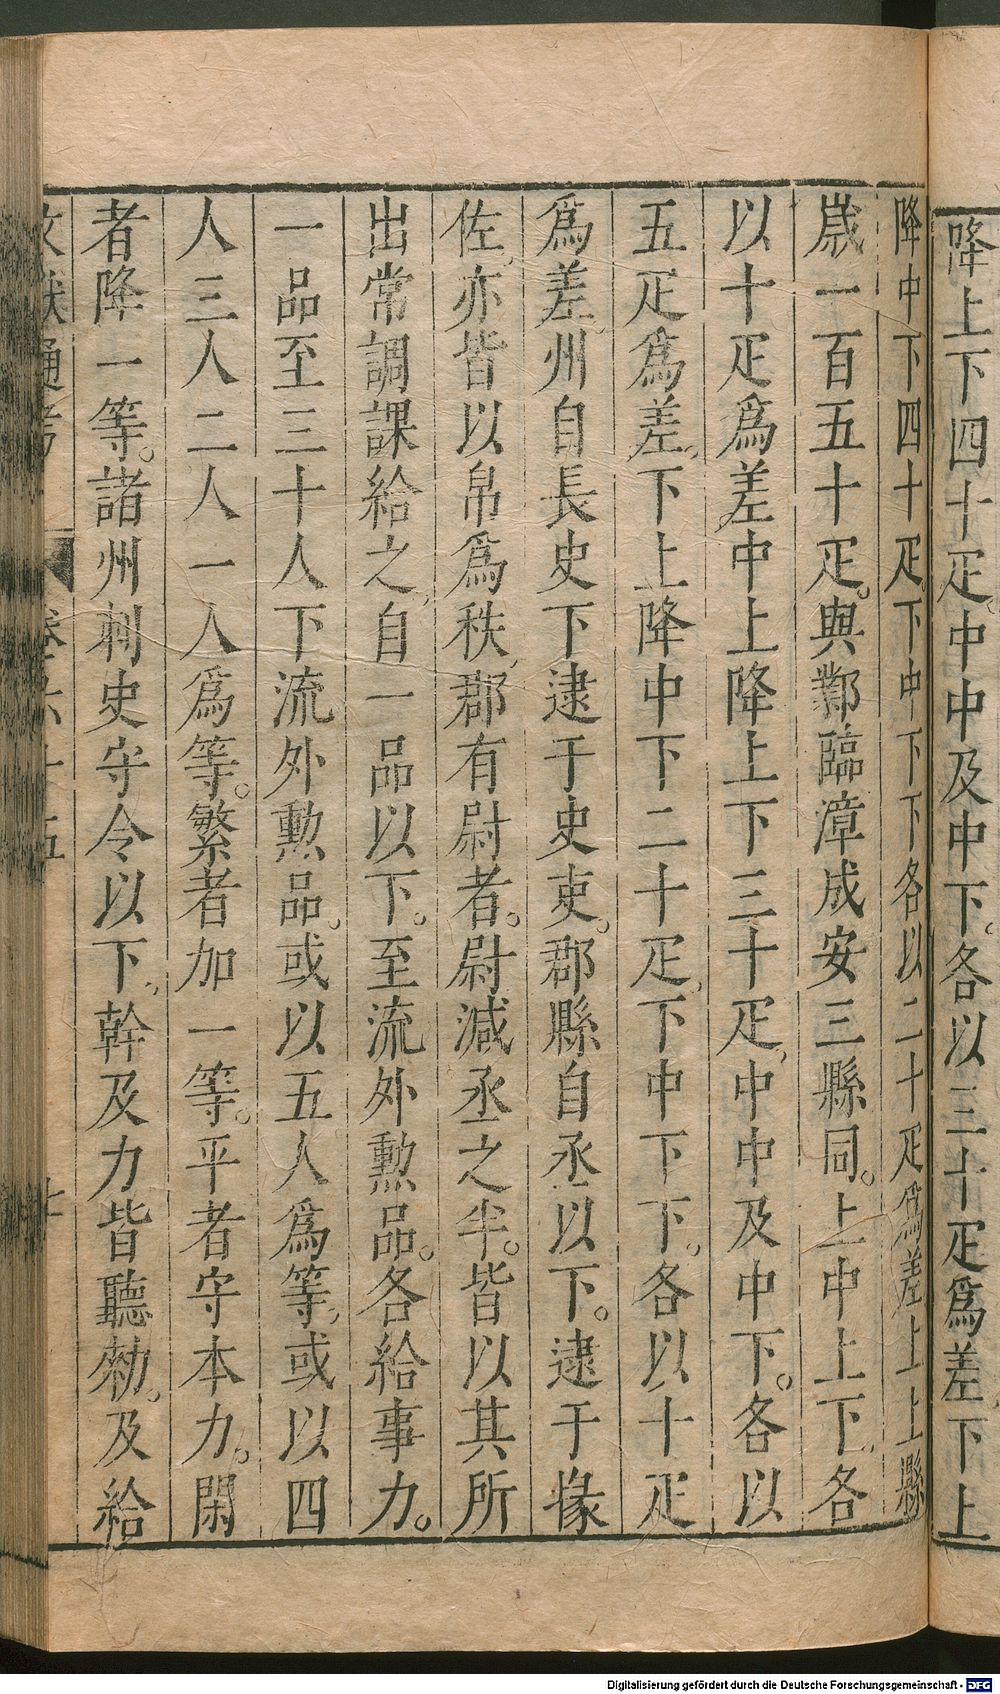 降上下四十疋。中中及中下。各以三十疋爲差。下上
降中下四十疋。下中下下各以二十疋爲差。上上縣
歲一百五十疋。與鄴臨漳成安三縣同。上中上下、各
以十疋爲差中上降上下三十疋、中中及中下。各以
五疋爲差、下上降中下二十疋、下中下下、各以十疋
爲差、州自長史下逮于史吏。郡縣自丞以下。逮于掾
佐、亦皆以帛爲秩、郡有尉者。尉減丞之半。皆以其所
出常調課給之、自一品以下。至流外勲品。各給事力。
一品至三十人下流外勲品、或以五人爲等、或以四
人三人二人一人爲等。繁者加一等。平者守本力。閑
者降一等。諸州刺史守令以下、幹及力皆聽勑。及給
文獻通考 卷六十五
Digitalisierung gefördert durch die Deutsche Forschungsgemeinschaft - DFG